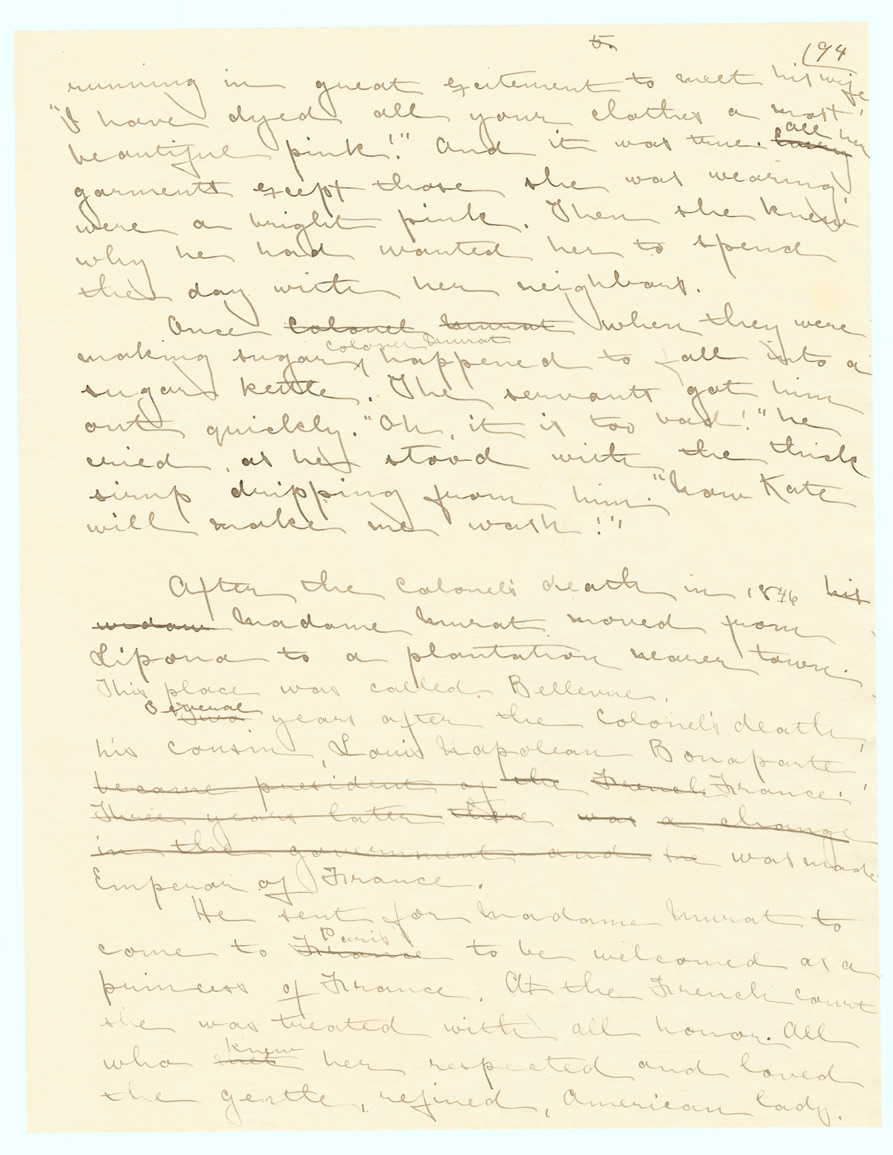 5. 194
running in great excitement to meet his wife
"I have dyed all your clothes a most
beautiful pink!" And it was true. all her
garments except those she was wearing
were a bright pink. Then she knew
why he had wanted her to spend
the day with her neighbors.
Once Colonel Murat when they were
making sugar, Colonel Murat happened to fall into a
sugar kettle. The servants got him
out quickly. "Oh, it is too bad!" he
cried, as he stood with the thick
sirup dripping from him. "Now Kate
will make me wash!"
After the Colonel's death in 1846 his
widow Madame Murat moved from
Lipona to a plantation nearer town.
This place was called Bellevue.
Several two years after the Colonel's death,
his cousin, Louis Napolean Bonaparte
became president of the French France.
Three years later there was a change
in the government and he was made
Emperor of France.
He sent for Madame Murat to
come to France Paris to be welcomed as a
princess of France. At the French court
she was treated with all honor. All
who met knew her respected and loved
the gentle, refined, American lady.